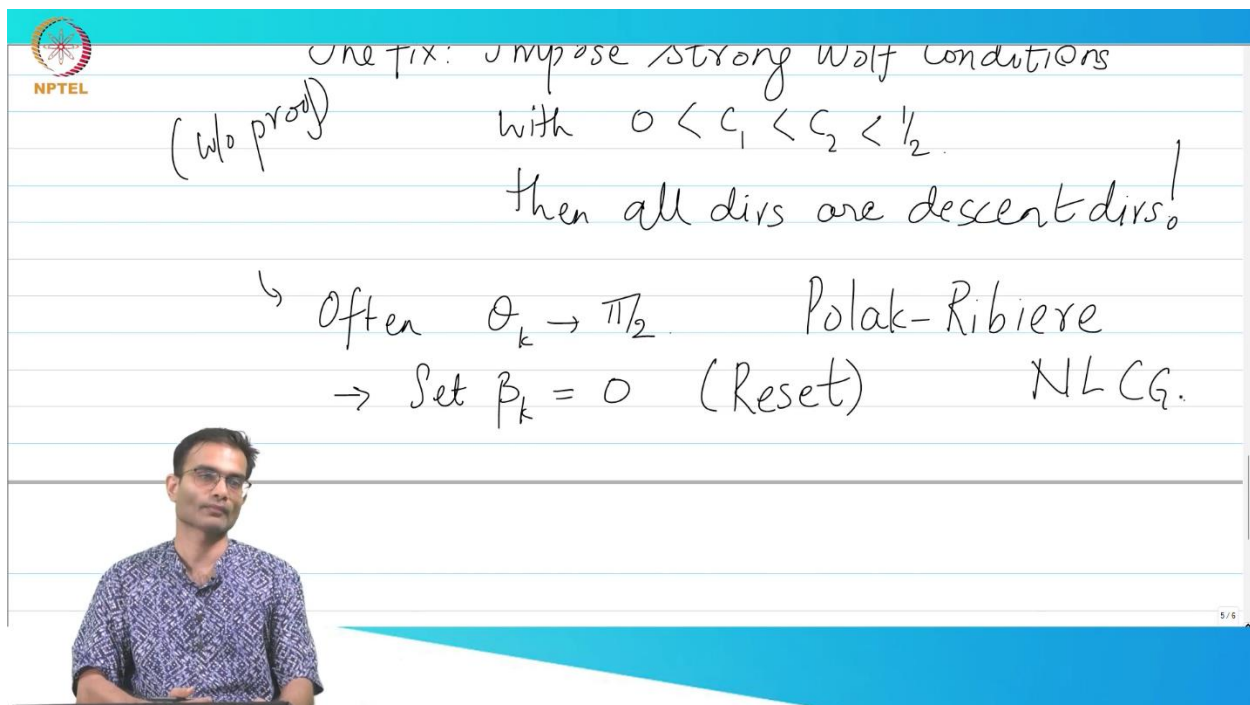 NPTEL
One fix: Impose strong Wolf conditions
(w/o proof)
with 0 < C₁ < C₂ < 1/2.
then all dirs are descent dirs!
↳ Often θₖ → π/2. Polak-Ribiere
→ Set βₖ = 0 (Reset) NLCG.
5 / 6